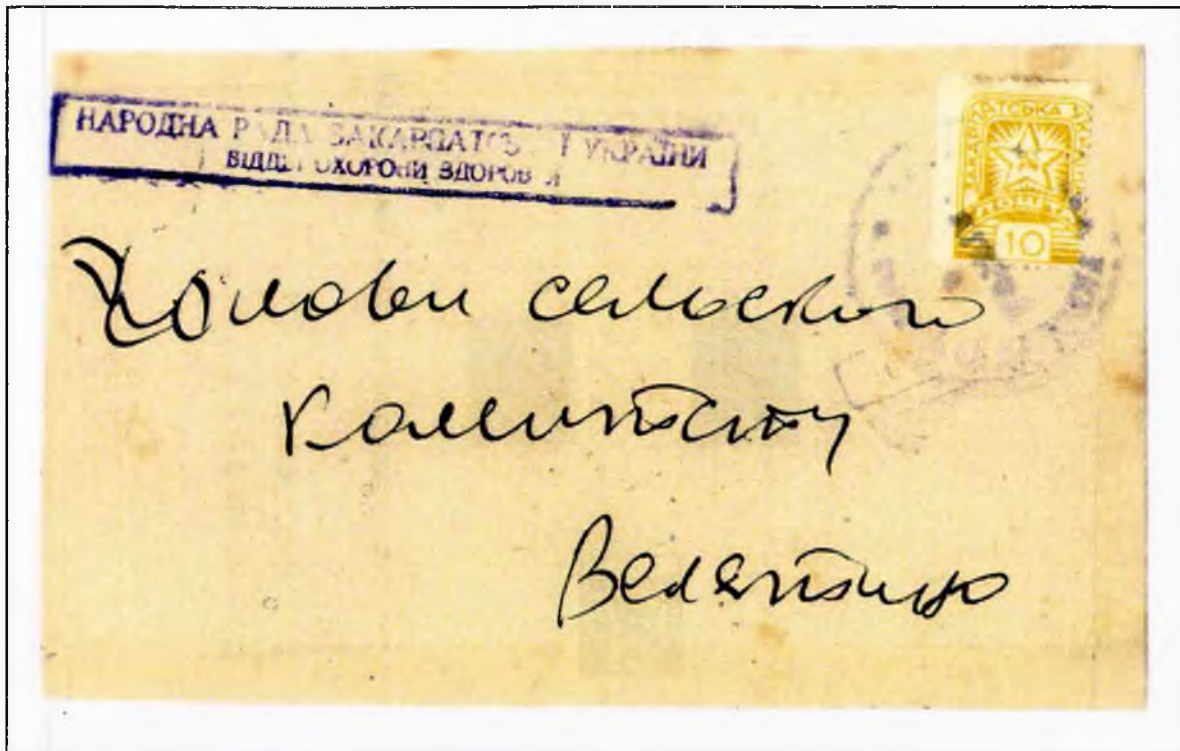 НАРОДНА РАДА ЗАКАРПАТСЬКОЇ УКРАЇНИ
ВІДДІЛ ОХОРОНИ ЗДОРОВЯ
ЗАКАРПАТСЬКА УКРАЇНА
ПОШТА
10
Голови сельского
Комитету